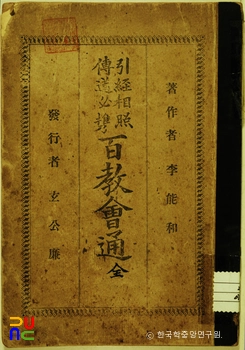 著作者 李能和
引經相照
傳道必携
百敎會通 全
發行者 玄公廉
© 한국학중앙연구원